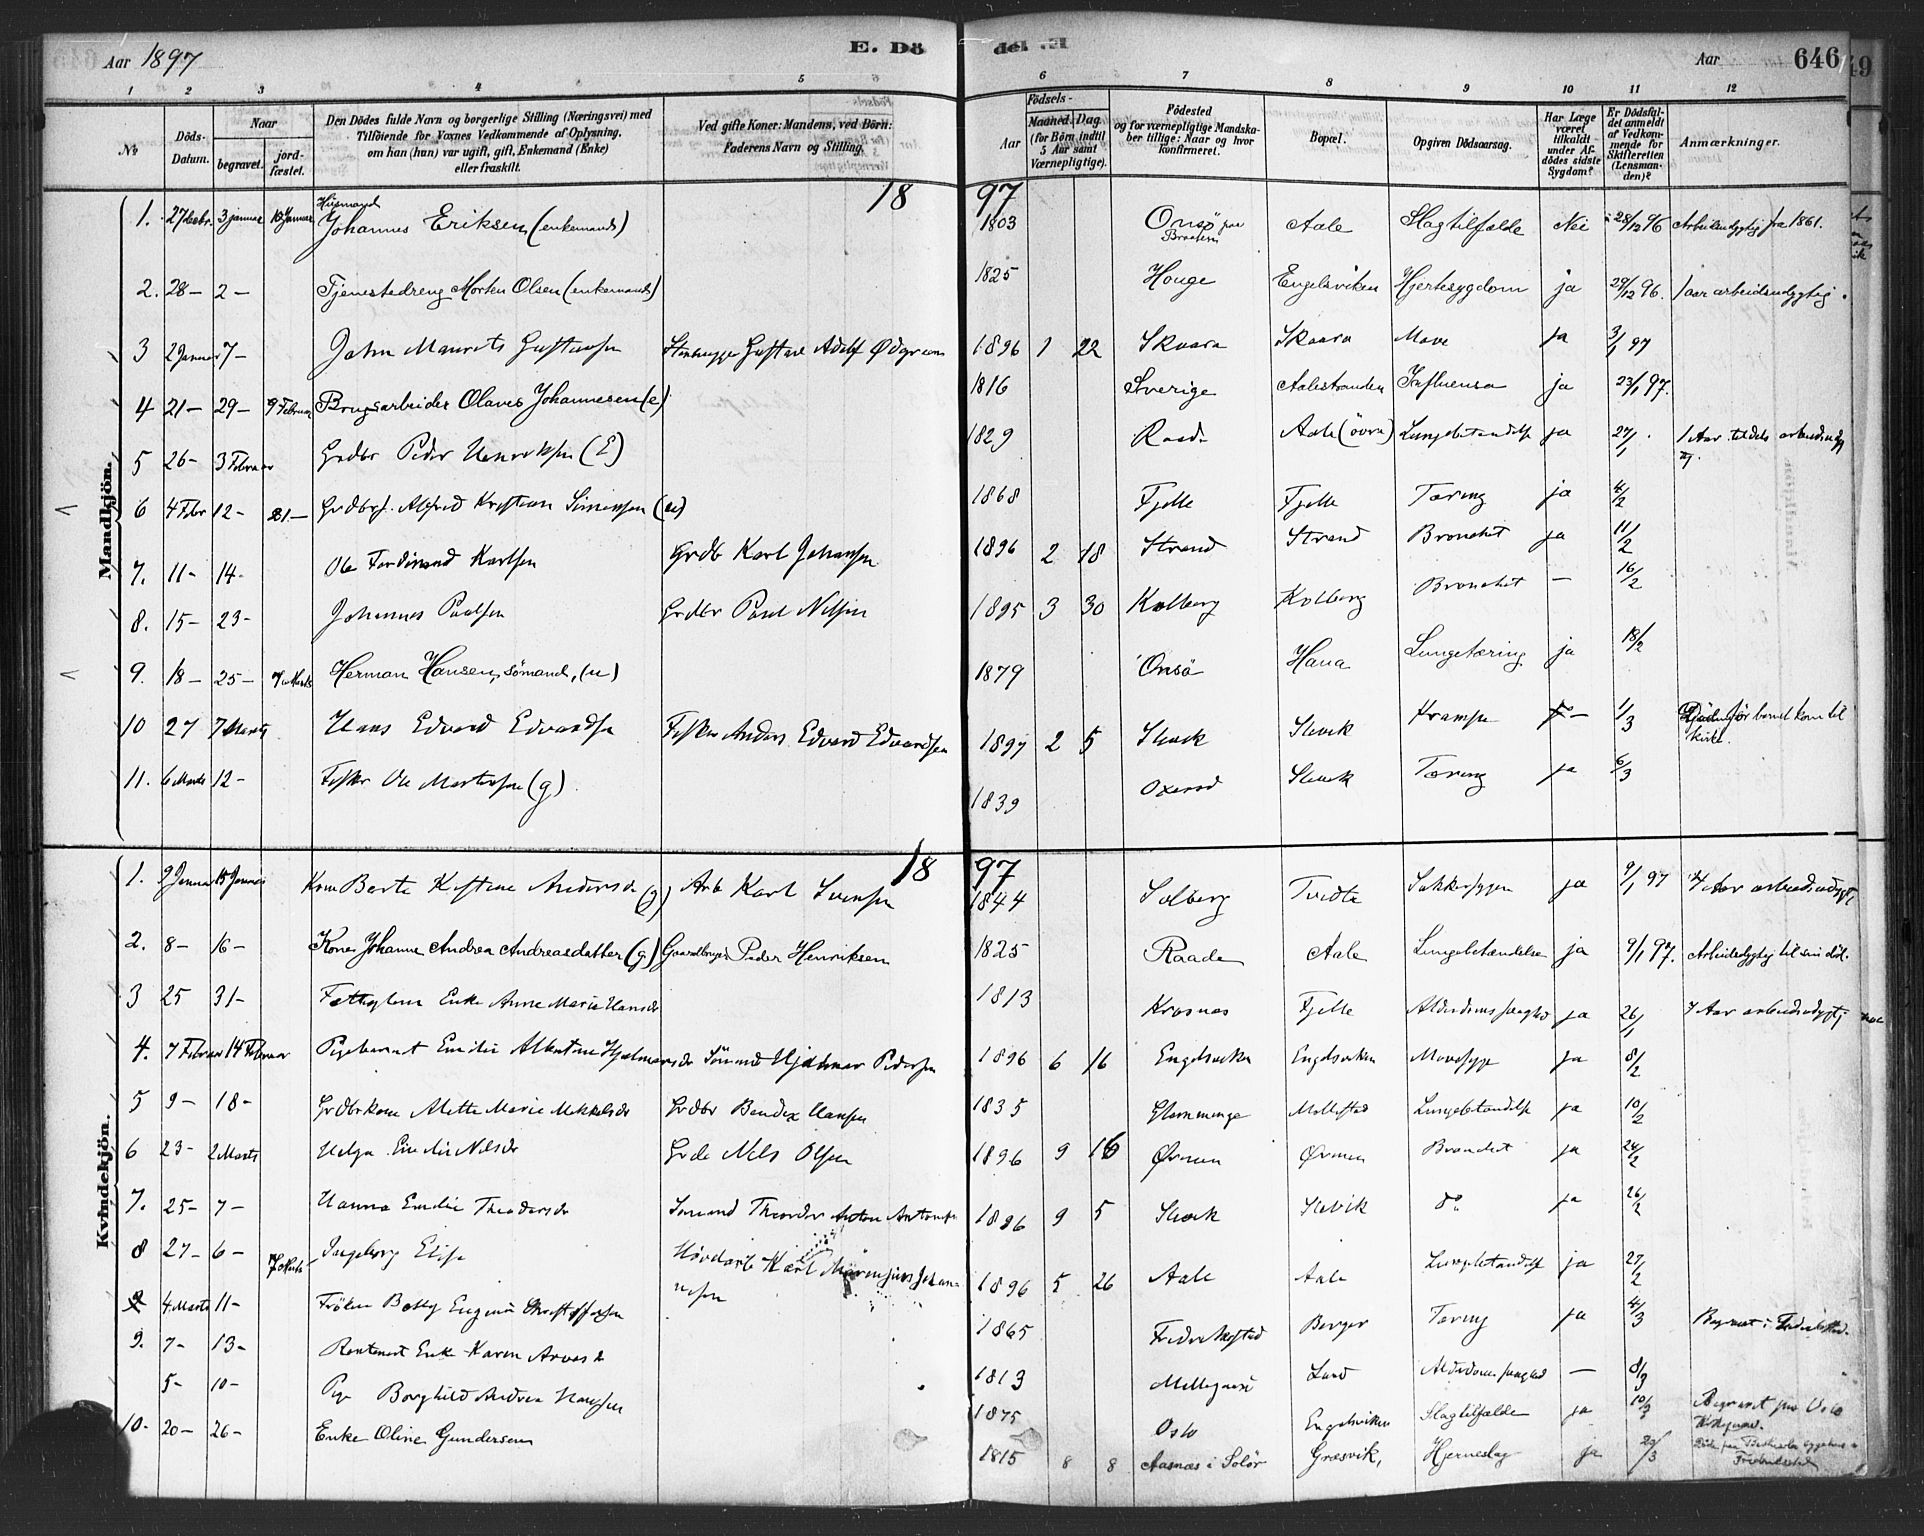 Aar 1897 E. Dö
del. E. Aar 646
1 2 3 4 5
6 7 8 9 10 11 12
No
Döds-Datum.
Naar
begravet.
jord-fæstet.
Den Dödes fulde Navn og borgerlige Stilling (Næringsvei) med
Tilföiende for Voxnes Vedkommende af Oplysning,
om han (hun) var ugift, gift, Enkemand (Enke)
eller fraskilt.
Ved gifte Koner: Mandens, ved Börn:
Faderens Navn og Stilling.
Födsels-
Aar
Maaned. Dag.
(for Börn indtil
5 Aar samt
Værnepligtige).
Födested
og for værnepligtige Mandska-
ber tillige: Naar og hvor
konfirmeret.
Bopæl.
Opgiven Dödsaarsag.
Har Læge
været
tilkaldt
under Af-
dödes sidste
Sygdom?
Er Dödsfal-
det anmeldt
af Vedkom-
mende for
Skifteretten
(Lensman-
den)?
Anmærkninger.
1897
Mandkjön.
1. 27 Decbr. 3 januar 10 Januar Husmand Johannes Eriksen (enkemand) 1803 Onsö paa Braaten Aale Slagtilfælde Nei 28/12 96 Arbeidsudygtig fra 1861.
2. 28- 2- Tjenestedreng Morten Olsen (enkemand) 1825 Houge Engelsviken Hjertesygdom ja 29/12 96. 1 aar arbeidsudygtig.
3 2 Januar 7- John Maurits Gustavsen Stenhugger Gustav Adolf 1896 1 22 Skaara Skaara Mave ja 3/1 97
4 21- 29- 9 Februar Brugsarbeider Olaves Johannesen (e) 1816 Sverige Aalestranden Influensa ja 23/1 97.
5 26- 3 Februar Grdbr Peder Henriksen (E) 1829 Raade Aale (övre) Lungebetændelse ja 27/1. 1 Aar tildels arbeidsudyg
tig.
6 4 Febr 12- 21- Grdbrs. Alfred Kristian Simensen (u) 1868 Fjelle Fjelle Tæring ja 4/2
7. 11- 14- Ole Ferdinand Karlsen Grdb Karl Johansen 1896 2 18 Strand Strand Bronchit ja 11/2
8. 15- 23- Johannes Paulsen Grdbr Paul Nilsen 1895 3 30 Kolberg Kolberg Bronchit - 16/2
9. 18- 25- 7 Marts Herman Hansen, sömand, (u) 1879 Onsö Hana Lungetæring ja 18/2
10 27 7 Marts Hans Edvard Edvardsen Fisker Anders Edvard Edvardsen 1897 2 5 Slevik Slevik Krampe - 1/3 Döde för barnet kom til
kirke.
11. 6 Marts 12- Fisker Ole Martinsen (g) 1839 Oxerød Slevik Tæring ja 6/3
1897
Kvindekjön.
1. 9 Januar 15 Januar Kone Berte Kristine Andersdr (g) Arb Karl Svensen 1844 Solberg Tvedte Sukkersygen ja 9/1 97 Aar arbeidsudygt.
2. 8- 16- Kone Johanne Andrea Andreasdatter (g) Gaardbruger Peder Henriksen 1825 Raade Aale Lungebetændelse ja 9/1 97. Arbeidsdygtig til sin död.
3 25 31- Fattiglem Enke Anne Marie Hansdr 1813 Kraanes Fjelle Alderdomssvaghed ja 26/1 7 Aar arbeidsudygtig
4. 7 Februar 14 Februar Pigebarnet Emilie Albertine Hjalmarsdr Sömand Hjalmar Pedersen 1896 6 16 Engelsviken Engelsviken Mavesyge ja 8/2
5 9- 18- Grdbrkone Alette Marie Mikkelsdr Grdbr Bendix Hansen 1835 Glemminge Mellestad Lungebetændelse ja 10/2
6 23- 2 Marts Helga Emilie Nilsdr Grdb Nils Olsen 1896 9 16 Ørmen Ørmen Bronchit ja 24/2
7. 25- 7- Hanna Emilie Theodorsdr Sömand Theodor Anton Antonsen 1896 9 5 Slevik Slevik do ja 26/2
8 27- 6- 7 Marts Ingeborg Elise Karl Johan-
nesen 1896 5 26 Aale Aale Lungebetændelse ja 27/2
4 Marts 11- Fröken Betty Eugenie Christoffersen 1865 Fredrikstad Berger Tæring ja 4/3 Begravet i Fredrikstad.
9. 7- 13- Enke Karen 1813 Lund Alderdomssvaghed - 8/3
5- 10- Pige Borghild Andrea Hansen 1875 Oslo Engelsviken Slagtilfælde ja 10/3 Begravet paa Oslo
Kirkegaard.
10. 20- 26- Enke Oline Gundersen 1815 8 8 Aasnæs i Solör Græsvik, Hjerneslag ja 20/3